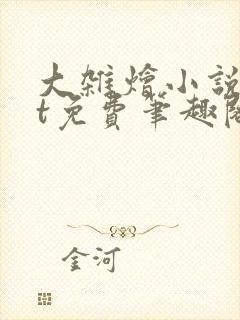 大雜燴小說
t免費筆趣閣
金河